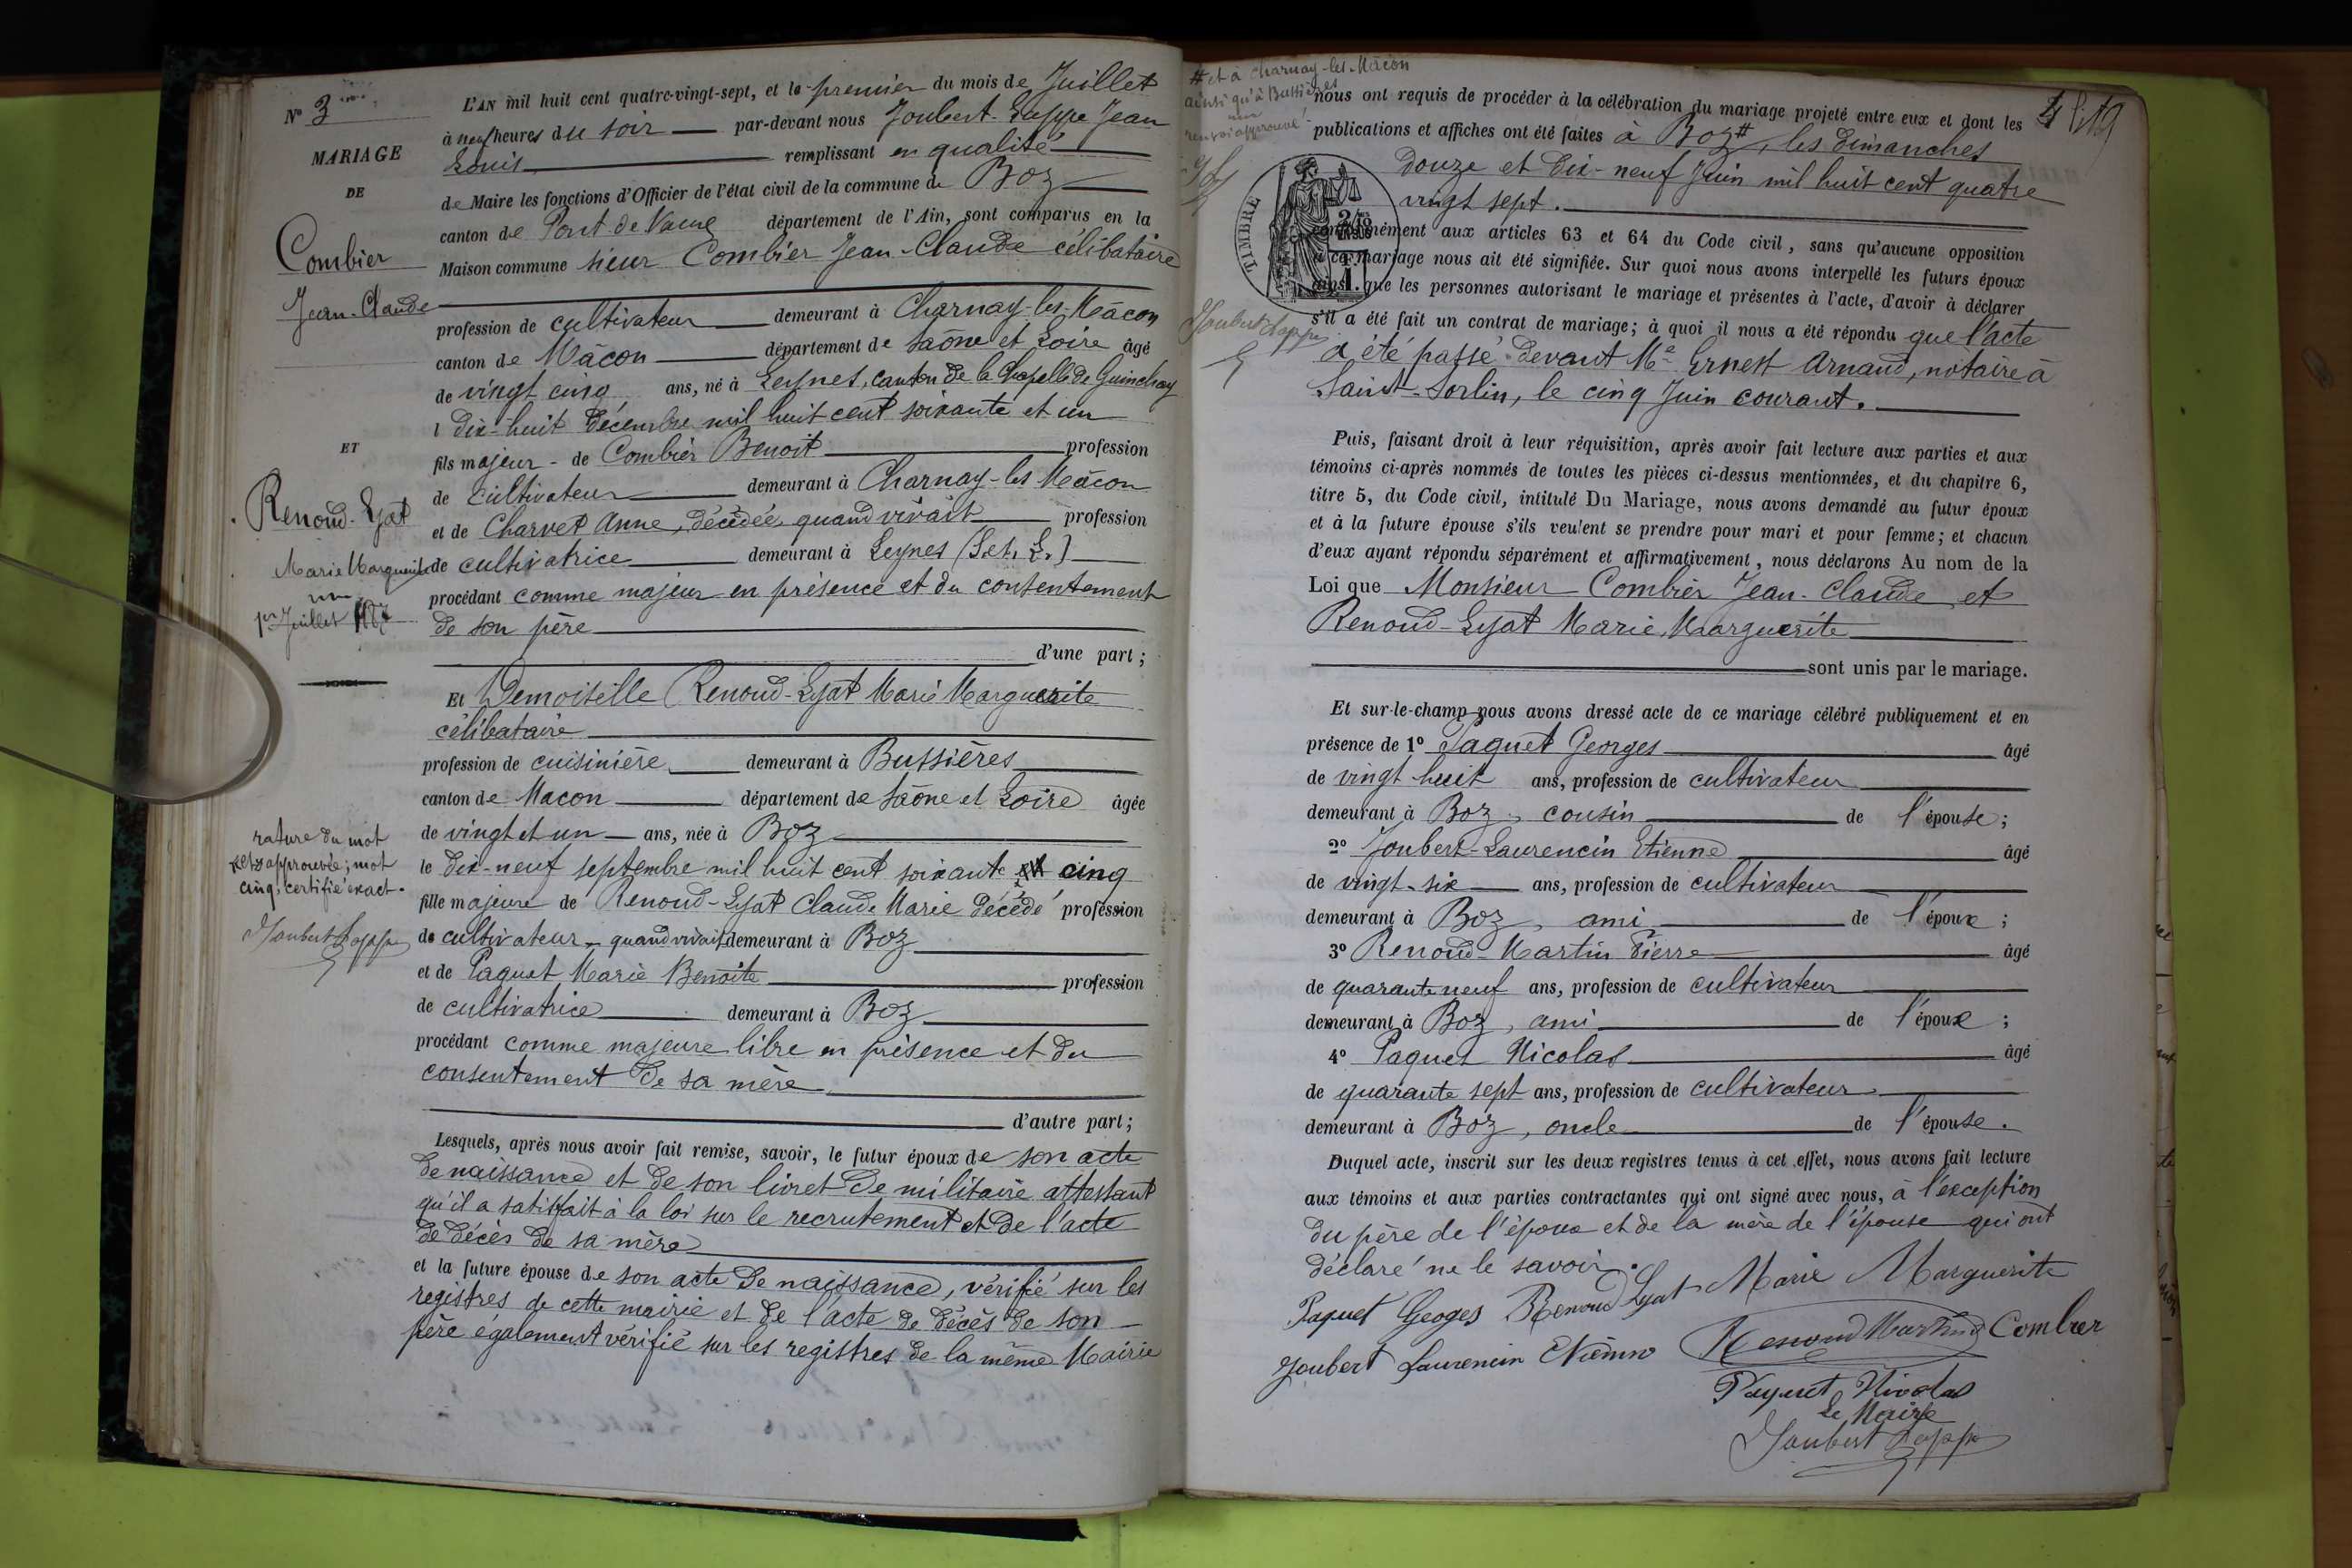 N° 3
MARIAGE
DE
Combier
Jean-Claude
ET
Renoud-Lyat
Marie Marguerite
1er Juillet 1887
rature du mot
approuvée; mot
cinq, certifié exact.
Joubert Lappe
L'AN mil huit cent quatre-vingt-sept, et le premier du mois de Juillet
à neuf heures du soir par-devant nous Joubert-Lappe Jean
Louis remplissant en qualité
de Maire les fonctions d'Officier de l'état civil de la commune de Boz
canton de Pont de Vaux département de l'Ain, sont comparus en la
Maison commune sieur Combier Jean-Claude célibataire
profession de cultivateur demeurant à Charnay-les-Mâcon
canton de Mâcon département de Saône et Loire âgé
de vingt cinq ans, né à Leynes, canton de la Chapelle de Guinchay
l dix-huit décembre mil huit cent soixante et un
fils majeur - de Combier Benoit profession
de cultivateur demeurant à Charnay-les Mâcon
et de Charvet Anne, décédée, quand vivait profession
de cultivatrice demeurant à Leynes (S. et L.)
procédant comme majeur en présence et du consentement
de son père
d'une part;
Et Demoiselle Renoud-Lyat Marie Marguerite
célibataire
profession de cuisinière demeurant à Bussières
canton de Macon département de Saône et Loire âgée
de vingt et un ans, née à Boz
le dix-neuf septembre mil huit cent soixante et cinq
fille majeure de Renoud-Lyat Claude Marie décédé profession
de cultivateur quand vivait demeurant à Boz
et de Paquet Marie Benoite profession
de cultivatrice demeurant à Boz
procédant comme majeure libre en présence et du
consentement de sa mère
d'autre part;
Lesquels, après nous avoir fait remise, savoir, le futur époux de son acte
de naissance et de son livret de militaire attestant
qu'il a satisfait à la loi sur le recrutement et de l'acte
de décès de sa mère
et la future épouse de son acte de naissance, vérifié sur les
registres de cette mairie et de l'acte de décès de son
père également vérifié sur les registres de la même Mairie
# et à Charnay-les-Mâcon
ainsi qu'à Bussières
renvoi approuvé.
Joubert Lappe
4
nous ont requis de procéder à la célébration du mariage projeté entre eux et dont les
publications et affiches ont été faites à Boz #, les dimanches
douze et dix-neuf Juin mil huit cent quatre
vingt sept.
TIMBRE
conformément aux articles 63 et 64 du Code civil, sans qu'aucune opposition
à ce mariage nous ait été signifiée. Sur quoi nous avons interpellé les futurs époux
ainsi que les personnes autorisant le mariage et présentes à l'acte, d'avoir à déclarer
s'il a été fait un contrat de mariage; à quoi il nous a été répondu que l'acte
a été passé devant Me Ernest Arnaud, notaire à
Saint-Sorlin, le cinq Juin courant.
Puis, faisant droit à leur réquisition, après avoir fait lecture aux parties et aux
témoins ci-après nommés de toutes les pièces ci-dessus mentionnées, et du chapitre 6,
titre 5, du Code civil, intitulé Du Mariage, nous avons demandé au futur époux
et à la future épouse s'ils veulent se prendre pour mari et pour femme; et chacun
d'eux ayant répondu séparément et affirmativement, nous déclarons Au nom de la
Loi que Monsieur Combier Jean-Claude et
Renoud-Lyat Marie Marguerite
sont unis par le mariage.
Et sur-le-champ nous avons dressé acte de ce mariage célébré publiquement et en
présence de 1° Paquet Georges âgé
de vingt huit ans, profession de cultivateur
demeurant à Boz, cousin de l'épouse;
2° Joubert-Laurencin Etienne âgé
de vingt-six ans, profession de cultivateur
demeurant à Boz, ami de l'époux;
3° Renoud-Martin Pierre âgé
de quarante neuf ans, profession de cultivateur
demeurant à Boz, ami de l'époux;
4° Paquet Nicolas âgé
de quarante sept ans, profession de cultivateur
demeurant à Boz, oncle de l'épouse.
Duquel acte, inscrit sur les deux registres tenus à cet effet, nous avons fait lecture
aux témoins et aux parties contractantes qui ont signé avec nous, à l'exception
du père de l'époux et de la mère de l'épouse qui ont
déclaré ne le savoir.
Paquet Geoges Renoud Lyat Marie Marguerite
Joubert Laurencin Etienne Renoud Martin Combier
Paquet Nicolas
Le Maire
Joubert Lappe